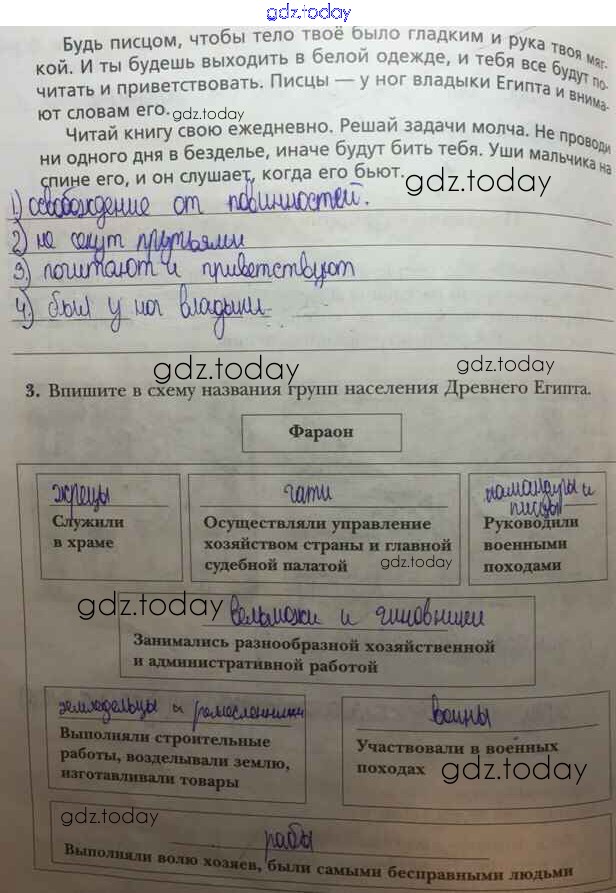 gdz.today
Будь писцом, чтобы тело твоё было гладким и рука твоя мяг-
кой. И ты будешь выходить в белой одежде, и тебя все будут по-
читать и приветствовать. Писцы — у ног владыки Египта и внима-
ют словам его.
gdz.today
Читай книгу свою ежедневно. Решай задачи молча. Не проводи
ни одного дня в безделье, иначе будут бить тебя. Уши мальчика на
спине его, и он слушает, когда его бьют.
gdz.today
1) освобождение от повинностей.
2) не секут прутьями
3) почитают и приветствуют
4) был у ног владыки
gdz.today
gdz.today
3. Впишите в схему названия групп населения Древнего Египта.
Фараон
жрецы
Служили
в храме
чати
Осуществляли управление
хозяйством страны и главной
судебной палатой
gdz.today
командиры и
писцы
Руководили
военными
походами
gdz.today
вельможи и чиновники
Занимались разнообразной хозяйственной
и административной работой
земледельцы и ремесленники
Выполняли строительные
работы, возделывали землю,
изготавливали товары
воины
Участвовали в военных
походах
gdz.today
gdz.today
рабы
Выполняли волю хозяев, были самыми бесправными людьми